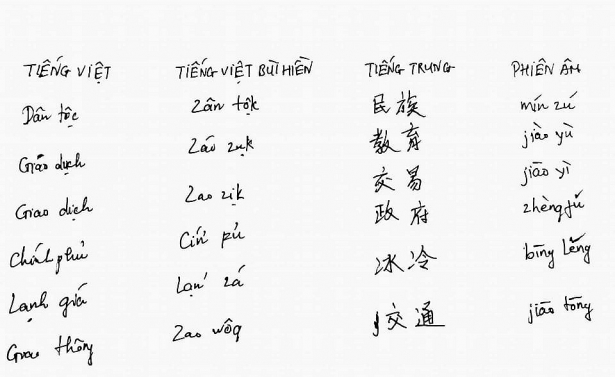 TIẾNG VIỆT TIẾNG VIỆT BÙI HIỀN TIẾNG TRUNG PHIÊN ÂM
Dân tộc Zân tộk 民族 mín zú
Giáo dục Záo zụk 教育 jiào yù
Giao dịch Zao zịk 交易 jiāo yì
Chính phủ Cín' pủ 政府 zhèngfǔ
Lạnh giá Lạn' zá 冰冷 bīng lěng
Giao thông Zao wôq 交通 jiāo tōng